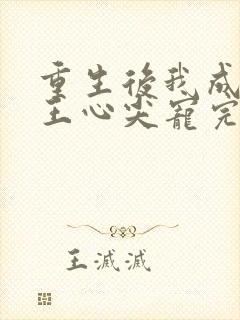 重生後我成
王心尖寵完
王滅滅